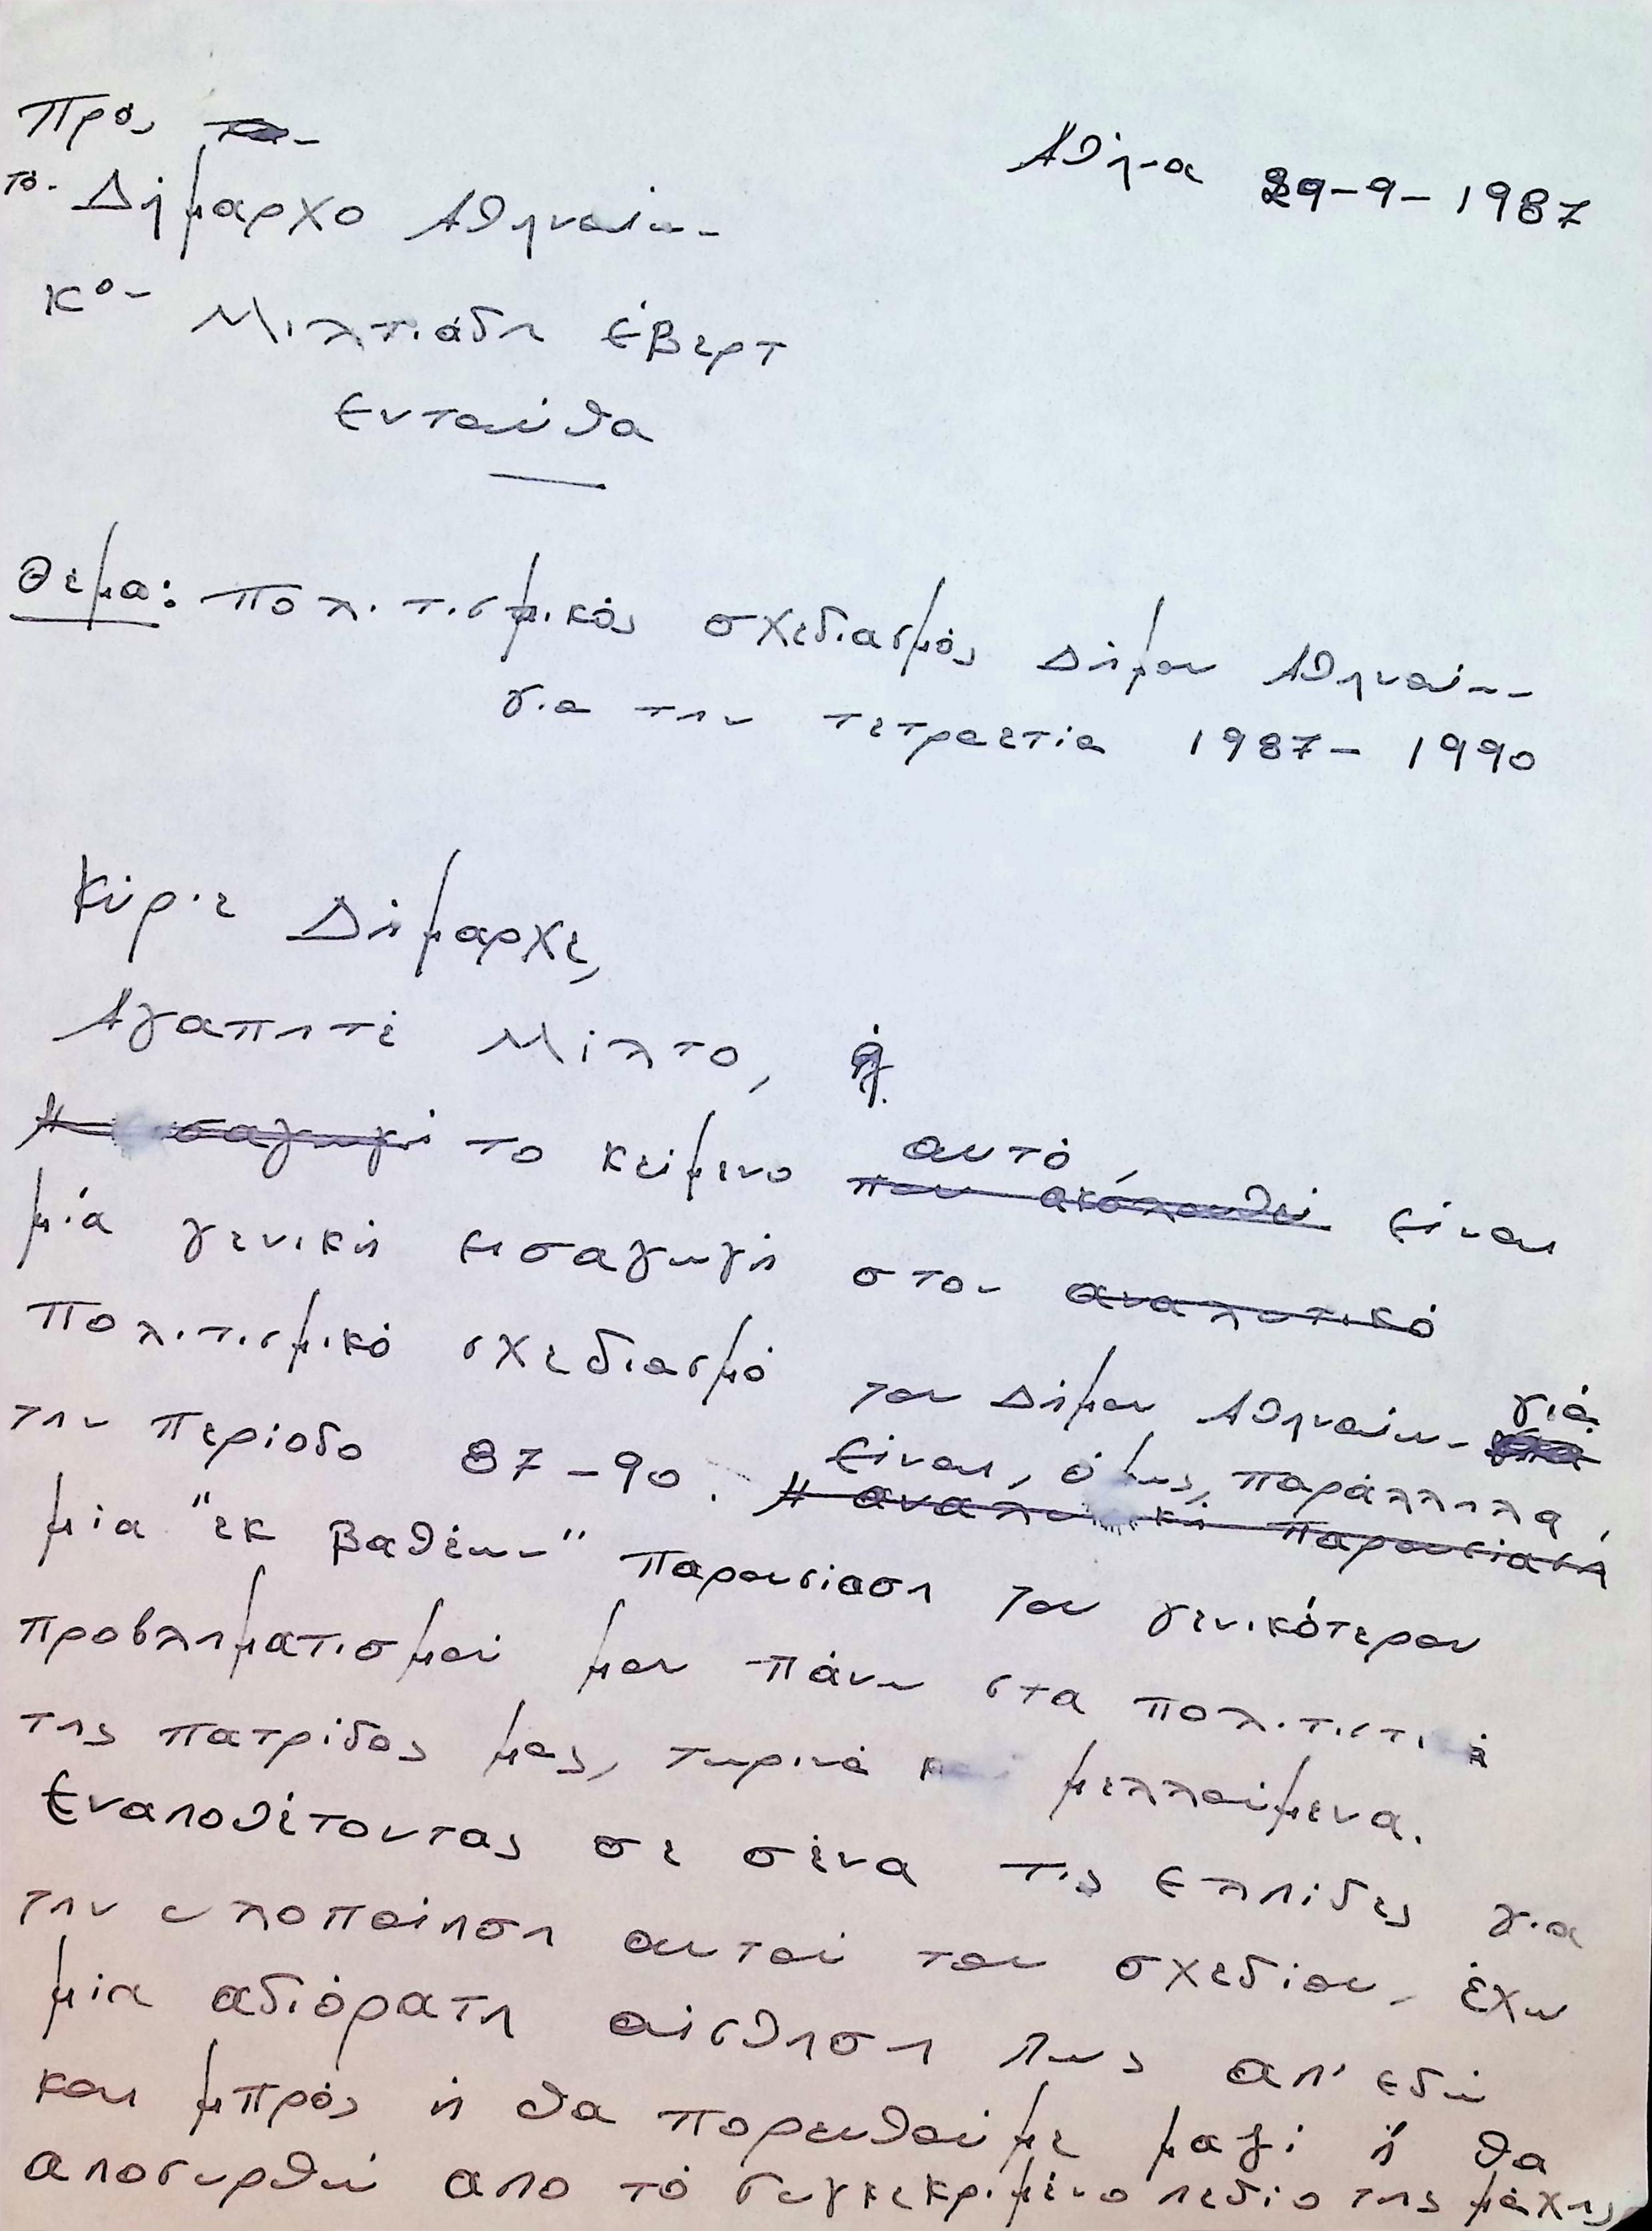 Προς
το- Δήμαρχο Αθηναίων
Αθήνα 29-9-1987
κον Μιλτιάδη Έβερτ
Ενταύθα
Θέμα: Πολιτισμικός σχεδιασμός Δήμου Αθηναίων
για την τετραετία 1987-1990
Κύριε Δήμαρχε,
Αγαπητέ Μίλτο,
Η εισαγωγή το κείμενο αυτό,
που ακόλουθεί είναι
μιά γενική εισαγωγή στον αναλυτικό
πολιτισμικό σχεδιασμό του Δήμου Αθηναίων γιά
την περίοδο 87-90. Είναι, όμως, παράλληλα,
Η αναλυτική παρουσίαση
μία "εκ βαθέων" παρουσίαση του γενικότερου
προβληματισμού μου πάνω στα πολιτιστικά
της πατρίδος μας, τωρινά και μελλούμενα.
Εναποθέτοντας σε σένα τις ελπίδες για
την υλοποίηση αυτού του σχεδίου, έχω
μία αδιόρατη αίσθηση πως απ' εδώ
και μπρός ή θα πορευθούμε μαζί ή θα
αποσυρθώ απο τό συγκεκριμένο πεδίο της μάχης,